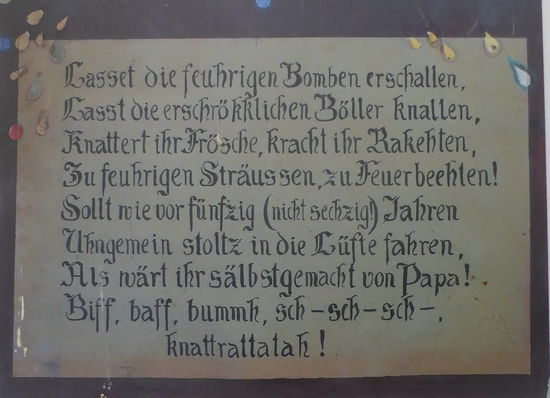 Lasset die feuhrigen Bomben erschallen,
Lasst die erschrökklichen Böller knallen,
Knattert ihr Frösche, kracht ihr Rakehten,
Zu feuhrigen Sträussen, zu Feuerbeehten!
Sollt wie vor fünfzig (nicht sechzig!) Jahren
Uhngemein stoltz in die Lüfte fahren,
Als wärt ihr sälbstgemacht von Papa!
Biff, baff, bummh, sch-sch-sch-,
knattrattatah!